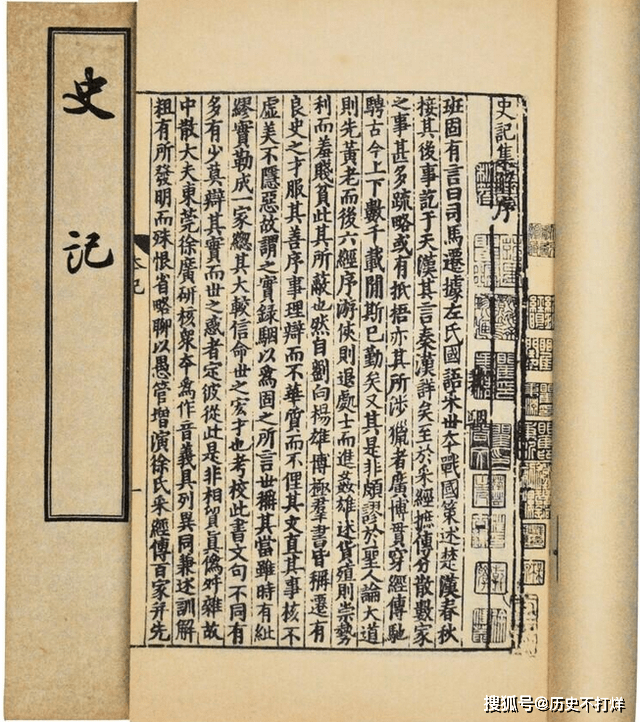 史記集解序
班固有言曰司馬遷據左氏國語采丗本戰國策述楚漢春秋
接其後事訖于天漢其言秦漢詳矣至於采經摭傳分散數家
之事甚多疏略或有抵梧亦其所涉獵者廣博貫穿經傳馳
騁古今上下數千載閒斯已勤矣又其是非頗謬於聖人論大道
則先黃老而後六經序游俠則退處士而進姦雄述貨殖則崇勢
利而羞賤貧此其所蔽也然自劉向楊雄博極羣書皆稱遷有
良史之才服其善序事理辯而不華質而不俚其文直其事核不
虛美不隱惡故謂之實錄駰以爲固之所言世稱其當雖時有紕
繆實勒成一家總其大較信命世之宏才也考校此書文句不同有
多有少莫辯其實而世之惑者定彼從此是非相貿眞僞舛雜故
中散大夫東莞徐廣研核衆本爲作音義具列異同兼述訓解
粗有所發明而殊恨省略聊以愚管增演徐氏采經傳百家并先
史記
搜狐号@历史不打烊